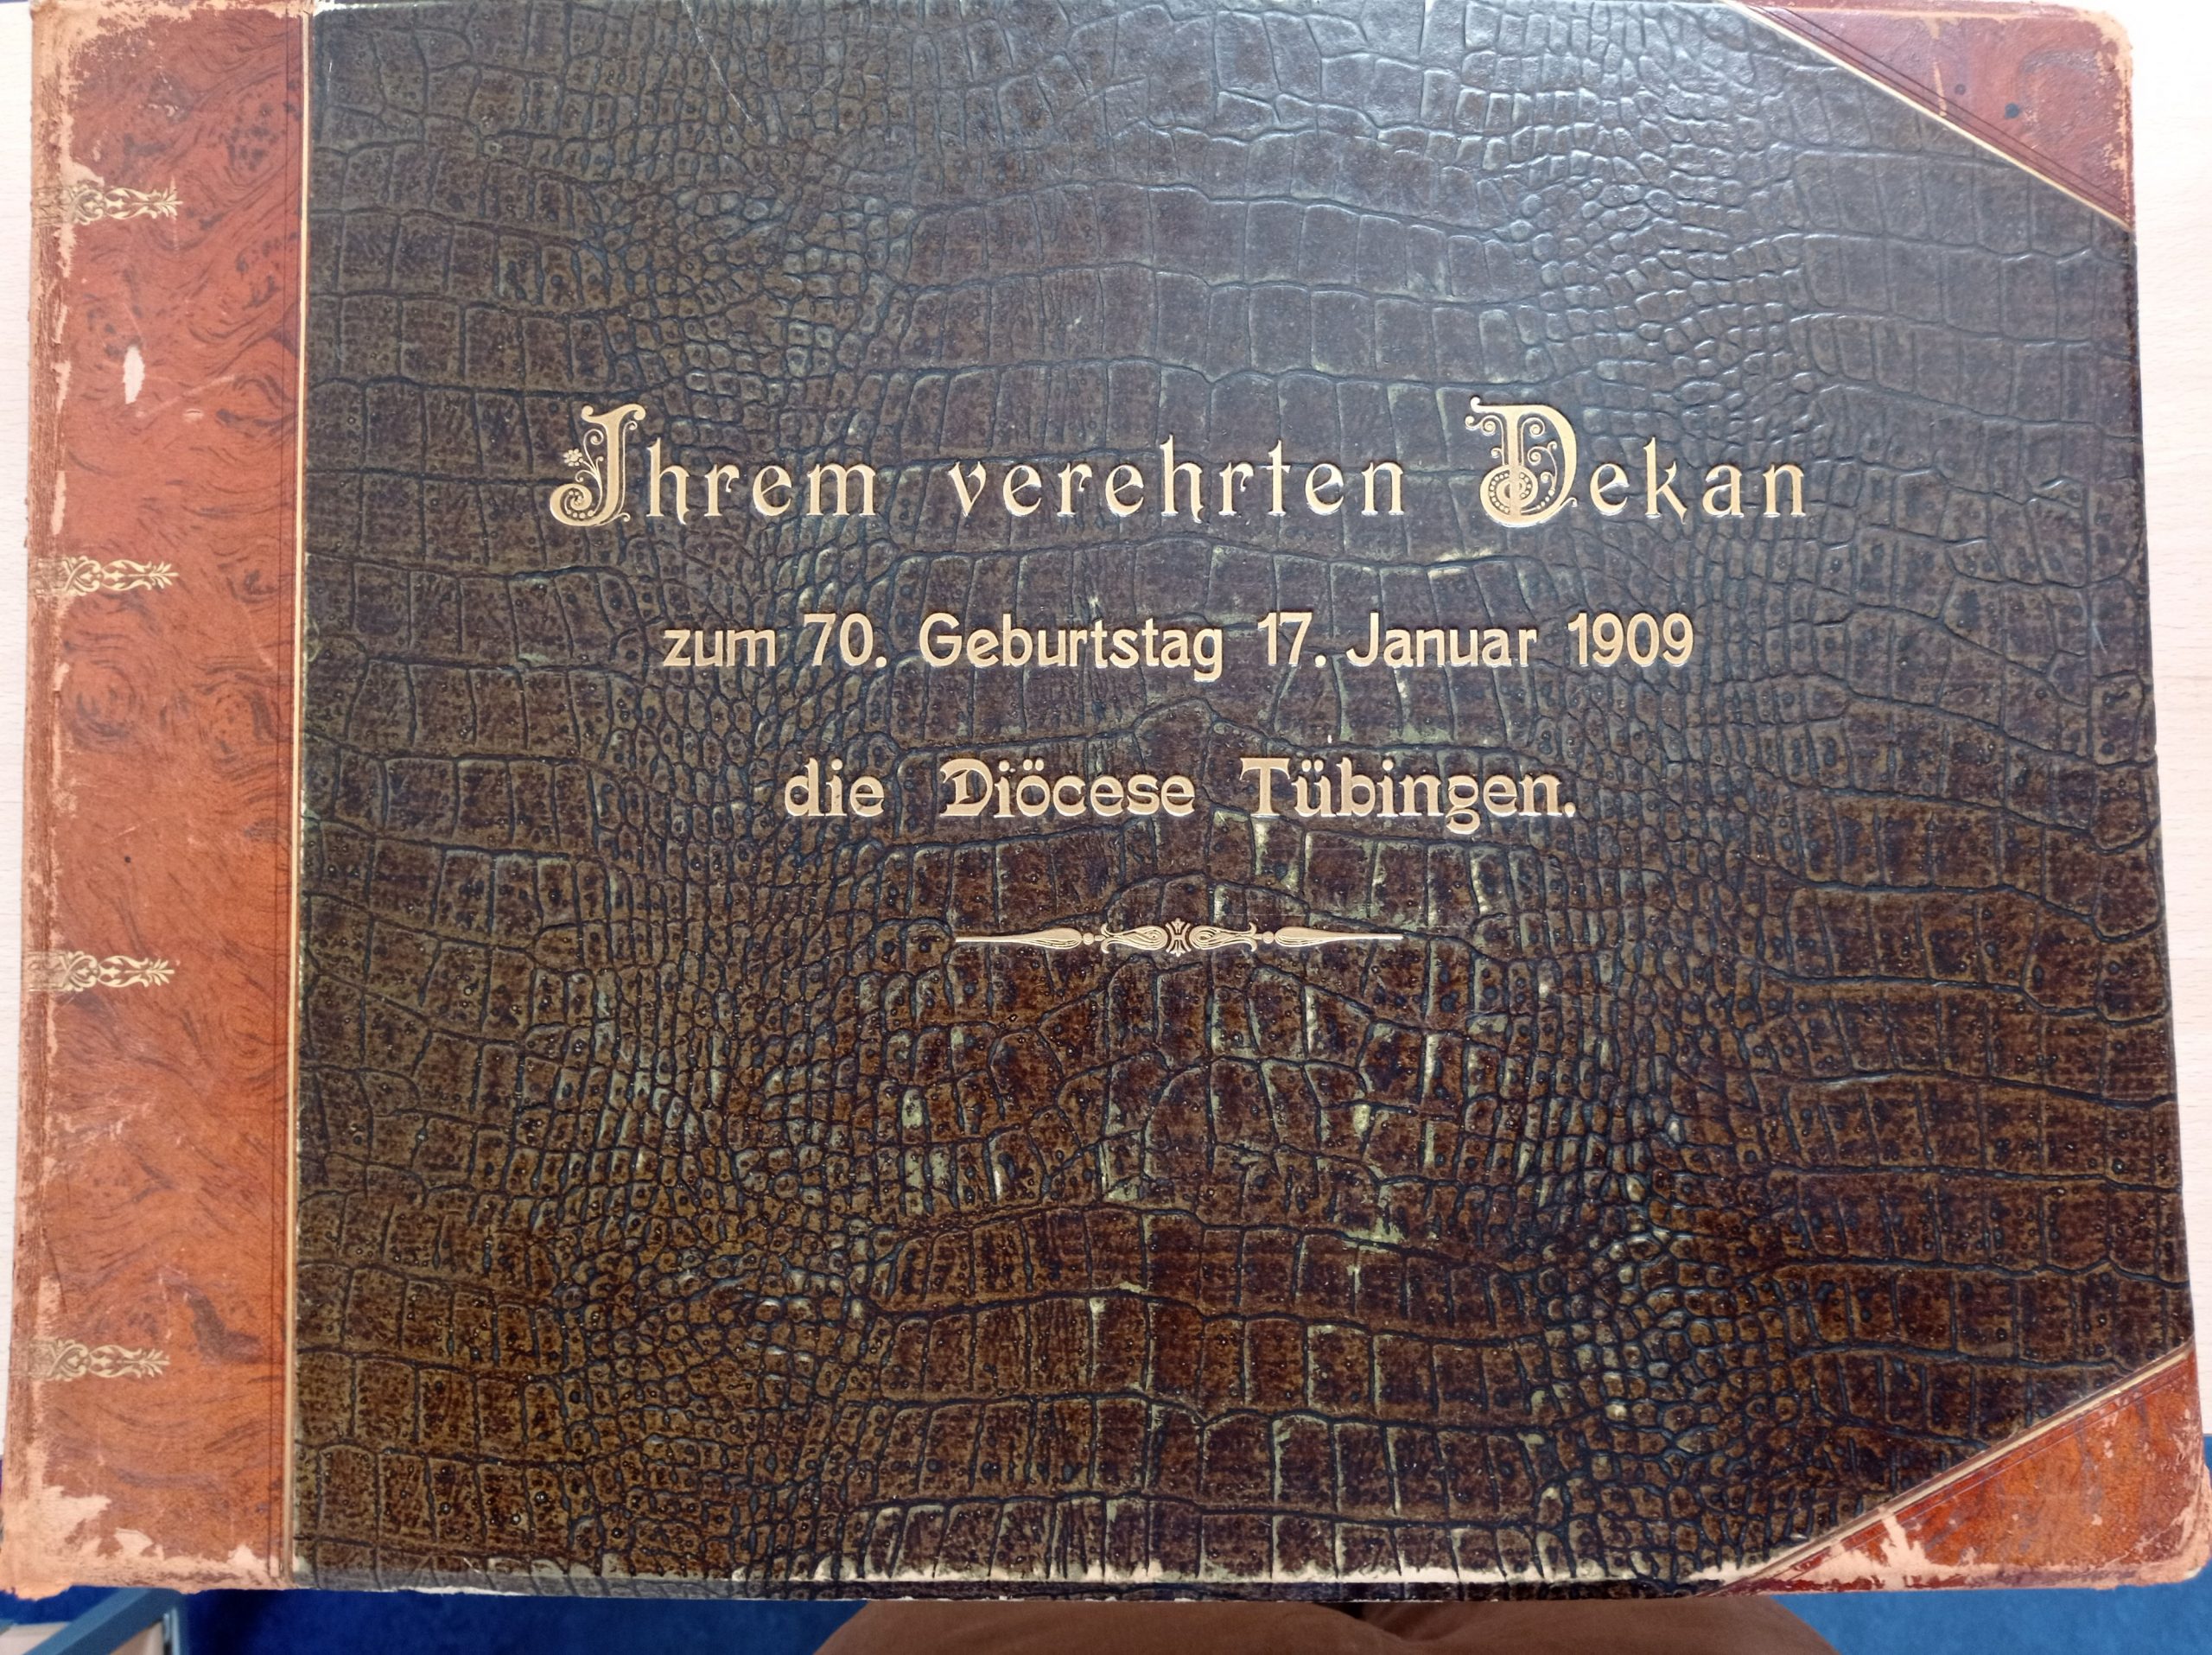 Ihrem verehrten Dekan
zum 70. Geburtstag 17. Januar 1909
die Diöcese Tübingen.